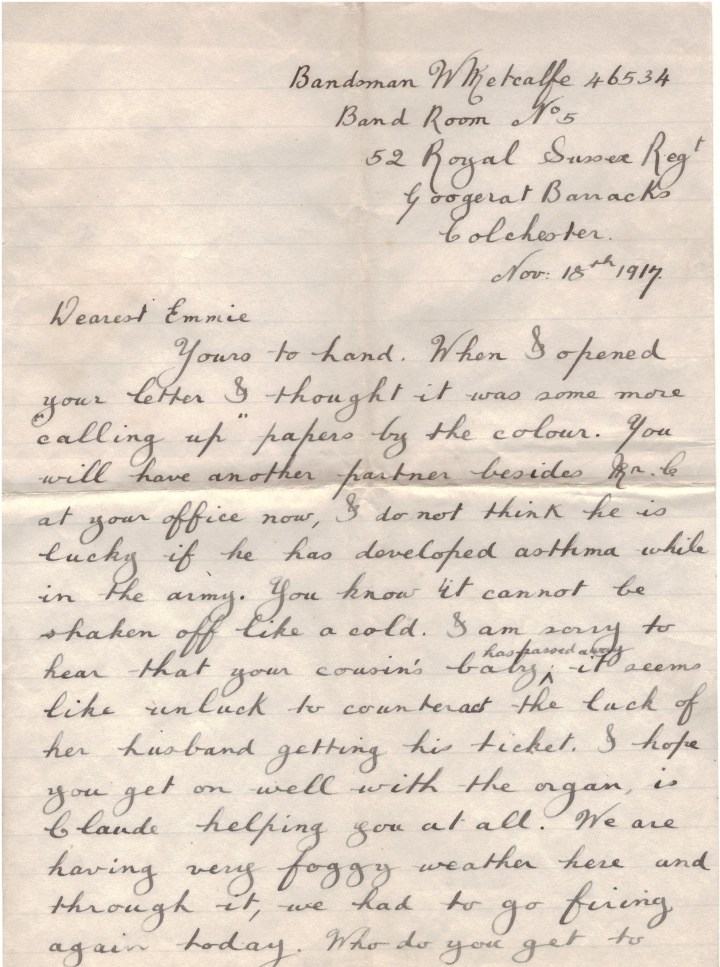 Bandsman W Metcalfe 46534
Band Room No 5
52 Royal Sussex Regt
Googerat Barracks
Colchester.
Nov: 18th 1917.
Dearest Emmie
Yours to hand. When I opened
your letter I thought it was some more
"calling up" papers by the colour. You
will have another partner besides Mr. C
at your office now, I do not think he is
lucky if he has developed asthma while
in the army. You know it cannot be
shaken off like a cold. I am sorry to
hear that your cousin's baby has passed away, it seems
like unluck to counteract the luck of
her husband getting his ticket. I hope
you get on well with the organ, is
Claude helping you at all. We are
having very foggy weather here and
through it, we had to go firing
again today. Who do you get to